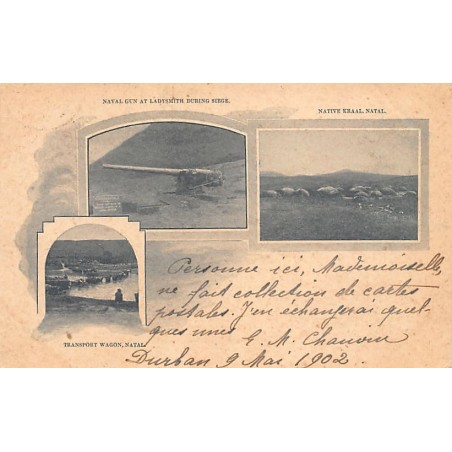 NAVAL GUN AT LADYSMITH DURING SIEGE.
NATIVE KRAAL, NATAL.
TRANSPORT WAGON, NATAL.
Personne ici, Mademoiselle,
ne fait collection de cartes
postales. J'en échangerai quel-
ques unes
E. M. Chauvin
Durban 9 Mai 1902.